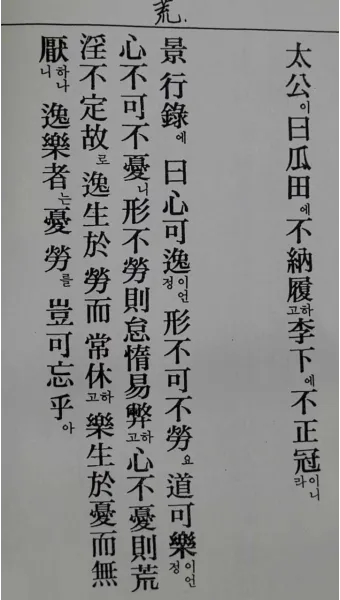 荒.
太公이曰瓜田에不納履하고李下에不正冠이니라
景行錄에曰心可逸이언정形不可不勞요道可樂이언정
心不可不憂니形不勞則怠惰易弊하고心不憂則荒
淫不定故로逸生於勞而常休하고樂生於憂而無
厭하나니逸樂者는憂勞를豈可忘乎아